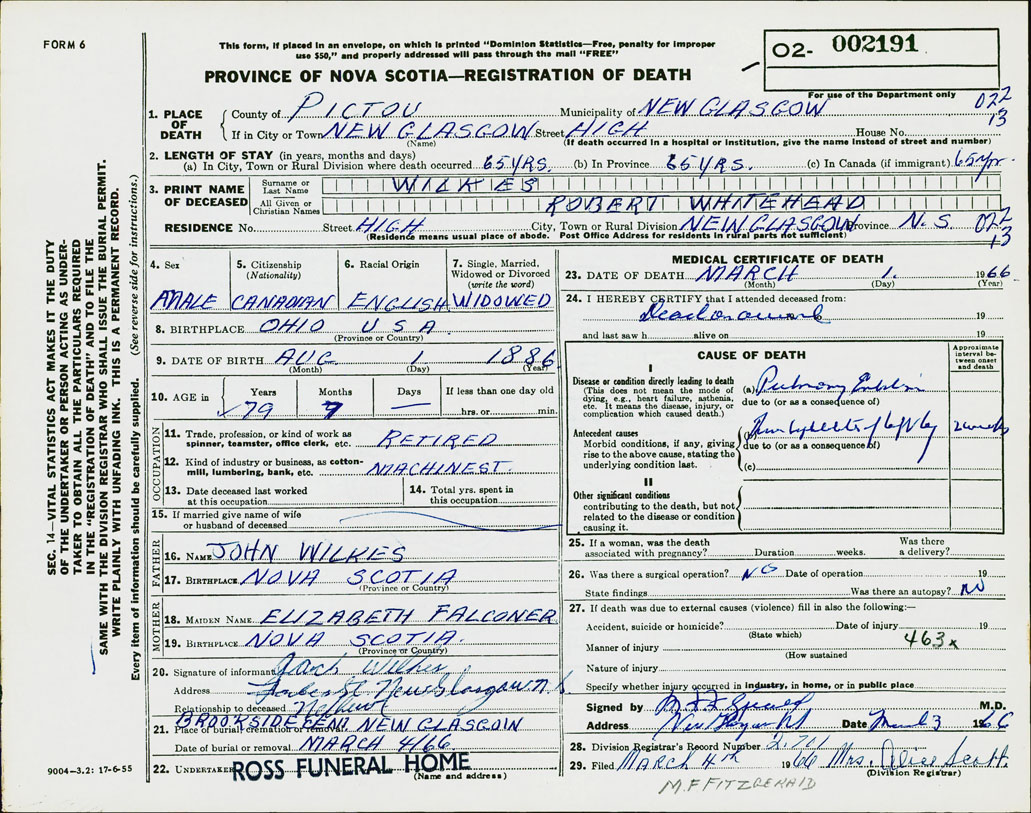 FORM 6
This form, if placed in an envelope, on which is printed "Dominion Statistics—Free, penalty for improper
use $50," and properly addressed will pass through the mail "FREE"
PROVINCE OF NOVA SCOTIA—REGISTRATION OF DEATH
02- 002191
For use of the Department only
022
13
1. PLACE OF DEATH
County of PICTOU Municipality of NEW GLASGOW
If in City or Town NEW GLASGOW Street HIGH House No.
(Name) (If death occurred in a hospital or institution, give the name instead of street and number)
2. LENGTH OF STAY (in years, months and days)
(a) In City, Town or Rural Division where death occurred 65 YRS. (b) In Province 65 YRS. (c) In Canada (if immigrant) 65 yr.
3. PRINT NAME OF DECEASED
Surname or Last Name WILKES
All Given or Christian Names ROBERT WHITEHEAD
RESIDENCE No. Street HIGH City, Town or Rural Division NEW GLASGOW Province N. S. 022
13
(Residence means usual place of abode. Post Office Address for residents in rural parts not sufficient)
4. Sex
MALE
5. Citizenship
(Nationality)
CANADIAN
6. Racial Origin
ENGLISH
7. Single, Married,
Widowed or Divorced
(write the word)
WIDOWED
8. BIRTHPLACE OHIO U S A.
(Province or Country)
9. DATE OF BIRTH AUG 1 1886
(Month) (Day) (Year)
10. AGE in
Years
79
Months
7
Days
—
If less than one day old
hrs. or min.
OCCUPATION
11. Trade, profession, or kind of work as
spinner, teamster, office clerk, etc. RETIRED
12. Kind of industry or business, as cotton-
mill, lumbering, bank, etc. MACHINEST.
13. Date deceased last worked
at this occupation
14. Total yrs. spent in
this occupation
15. If married give name of wife
or husband of deceased
FATHER
16. NAME JOHN WILKES
17. BIRTHPLACE NOVA SCOTIA
(Province or Country)
MOTHER
18. MAIDEN NAME ELIZABETH FALCONER
19. BIRTHPLACE NOVA SCOTIA.
(Province or Country)
20. Signature of informant Jack Wilkes
Address Forbes St. New Glasgow N. S
Relationship to deceased Nephew
21. Place of burial, cremation or removal BROOKSIDE CEM. NEW GLASGOW
Date of burial or removal MARCH 4/66
22. UNDERTAKER ROSS FUNERAL HOME
(Name and address)
MEDICAL CERTIFICATE OF DEATH
23. DATE OF DEATH MARCH 1. 1966
(Month) (Day) (Year)
24. I HEREBY CERTIFY that I attended deceased from:
Dead on arrival 19
and last saw h alive on 19
CAUSE OF DEATH
Approximate
interval be-
tween onset
and death
I
Disease or condition directly leading to death
(This does not mean the mode of
dying, e.g., heart failure, asthenia,
etc. It means the disease, injury, or
complication which caused death.)
(a) Pulmonary
due to (or as a consequence of)
Antecedent causes
Morbid conditions, if any, giving
rise to the above cause, stating the
underlying condition last.
(b) of left leg 2 weeks
due to (or as a consequence of)
(c)
II
Other significant conditions
contributing to the death, but not
related to the disease or condition
causing it.
25. If a woman, was the death
associated with pregnancy? Duration weeks.
Was there
a delivery?
26. Was there a surgical operation? NO Date of operation 19
State findings Was there an autopsy? NO
27. If death was due to external causes (violence) fill in also the following:—
Accident, suicide or homicide? Date of injury 19
(State which)
463x
Manner of injury
(How sustained
Nature of injury
Specify whether injury occurred in industry, in home, or in public place
Signed by M.D.
Address New Glasgow NS Date March 3 1966
28. Division Registrar's Record Number 2711
29. Filed MARCH 4TH 1966 Mrs. Alice Scott.
(Division Registrar)
M.F FITZGERALD
SEC. 14—VITAL STATISTICS ACT MAKES IT THE DUTY
OF THE UNDERTAKER OR PERSON ACTING AS UNDER-
TAKER TO OBTAIN ALL THE PARTICULARS REQUIRED
IN THE "REGISTRATION OF DEATH" AND TO FILE THE
SAME WITH THE DIVISION REGISTRAR WHO SHALL ISSUE THE BURIAL PERMIT.
WRITE PLAINLY WITH UNFADING INK. THIS IS A PERMANENT RECORD.
Every item of information should be carefully supplied. (See reverse side for instructions.)
9004—3.2: 17-6-55